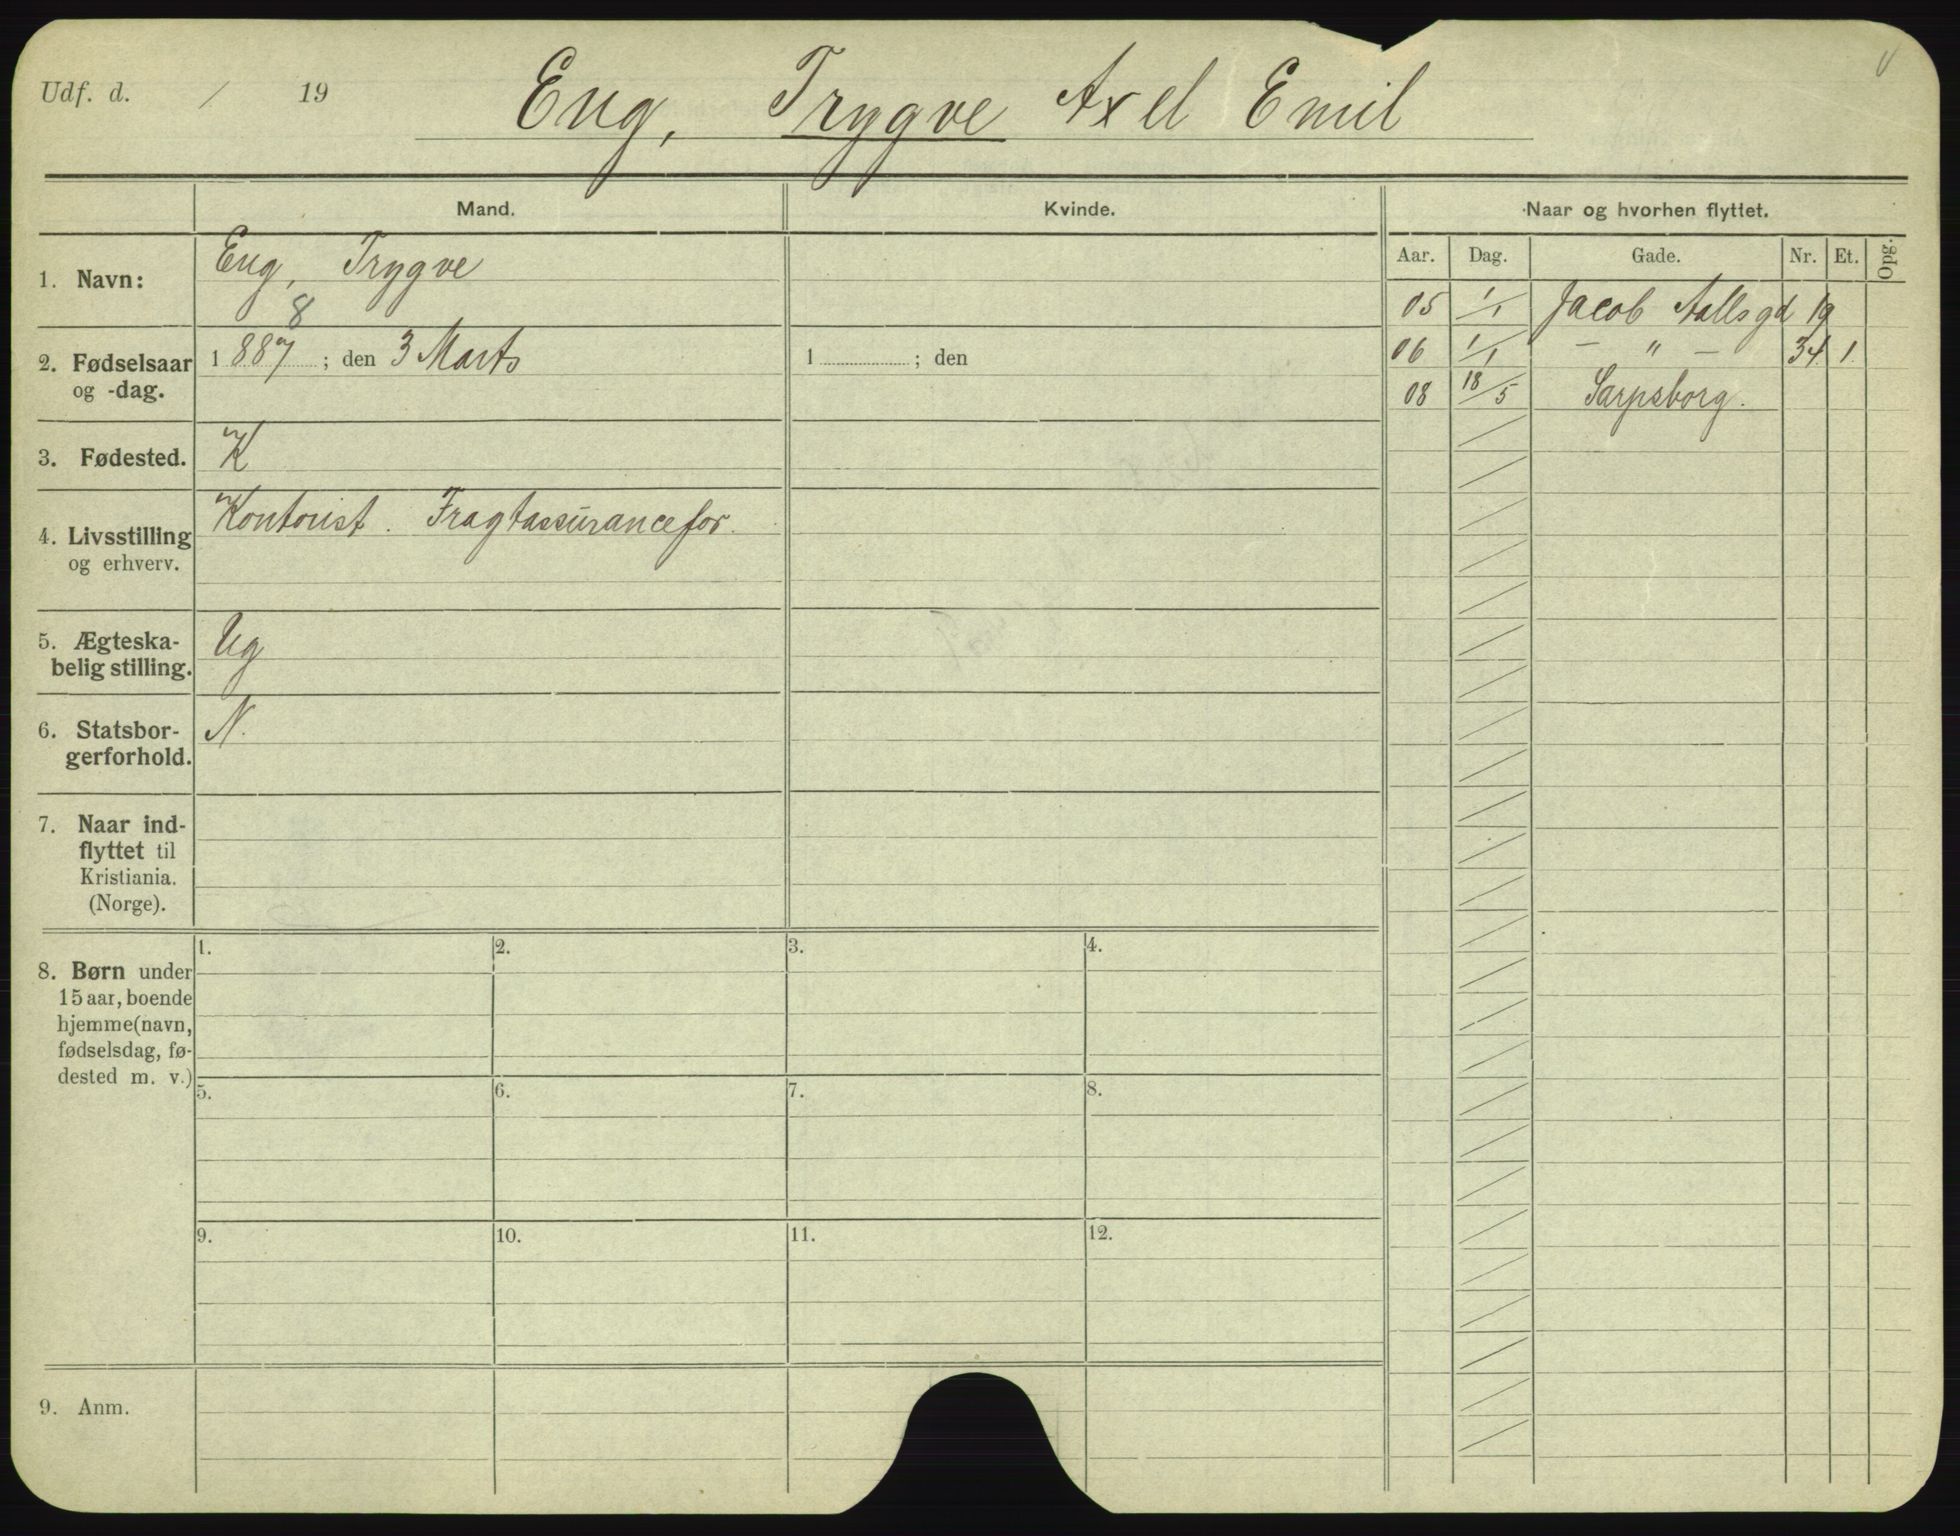 Udf. d. / 19
Eng, Trygve Axel Emil
Mand.
Kvinde.
Naar og hvorhen flyttet.
Aar. Dag. Gade. Nr. Et. Opg.
1. Navn:
Eng, Trygve
05 1/1 Jacob Aallsgd 19
06 1/1 — " — 34 1.
08 18/5 Sarpsborg.
2. Fødselsaar
og -dag.
8
1887; den 3 Marts
1 ; den
3. Fødested.
K
4. Livsstilling
og erhverv.
Kontorist. Fragtassurancefor.
5. Ægteska-
belig stilling.
Ug
6. Statsbor-
gerforhold.
N.
7. Naar ind-
flyttet til
Kristiania.
(Norge).
8. Børn under
15 aar, boende
hjemme (navn,
fødselsdag, fø-
dested m. v.)
1. 2. 3. 4.
5. 6. 7. 8.
9. 10. 11. 12.
9. Anm.